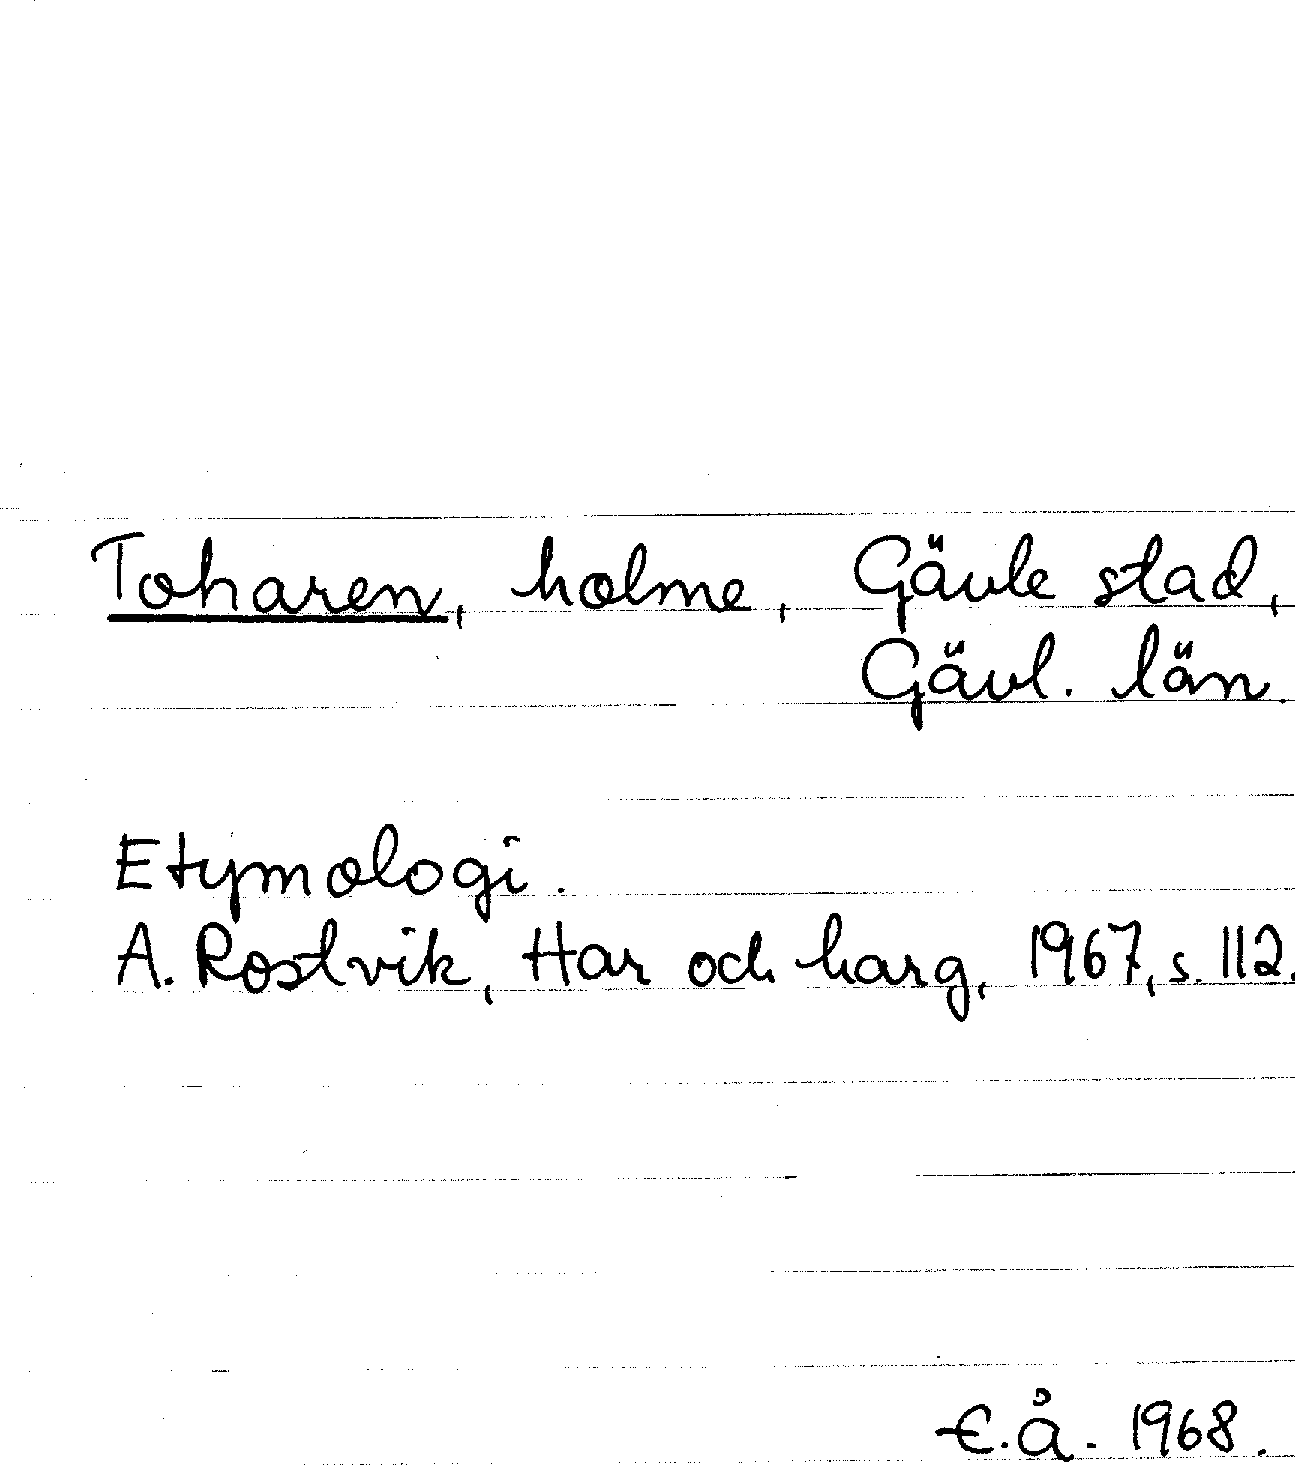 Toharen, holme, Gävle stad,
Gävl. län.
Etymologi.
A. Rostvik, Har och harg, 1967, s. 112.
E.Å. 1968.